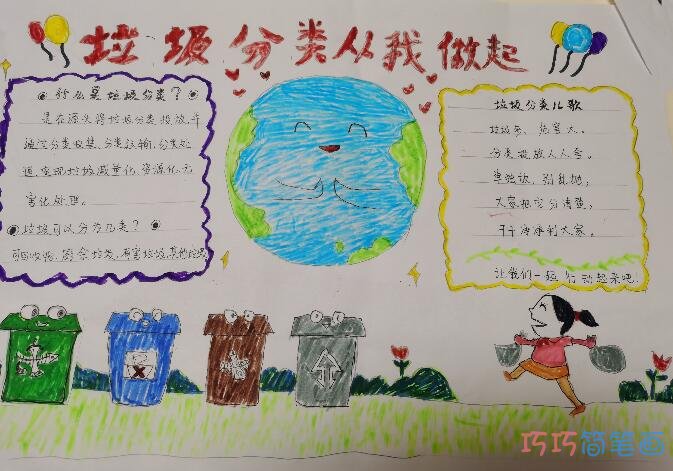 垃圾分类从我做起
什么是垃圾分类？
是在源头将垃圾分类投放，并
通过分类收集、分类运输、分类处
理，实现垃圾减量化、资源化、无
害化处理。
垃圾可以分为几类？
可回收物、厨余垃圾、有害垃圾、其他垃圾
垃圾分类儿歌
垃圾多，危害大。
分类投放人人夸。
单独放，别乱抛，
大家把它分清楚，
干干净净利大家。
让我们一起行动起来吧！
巧巧简笔画